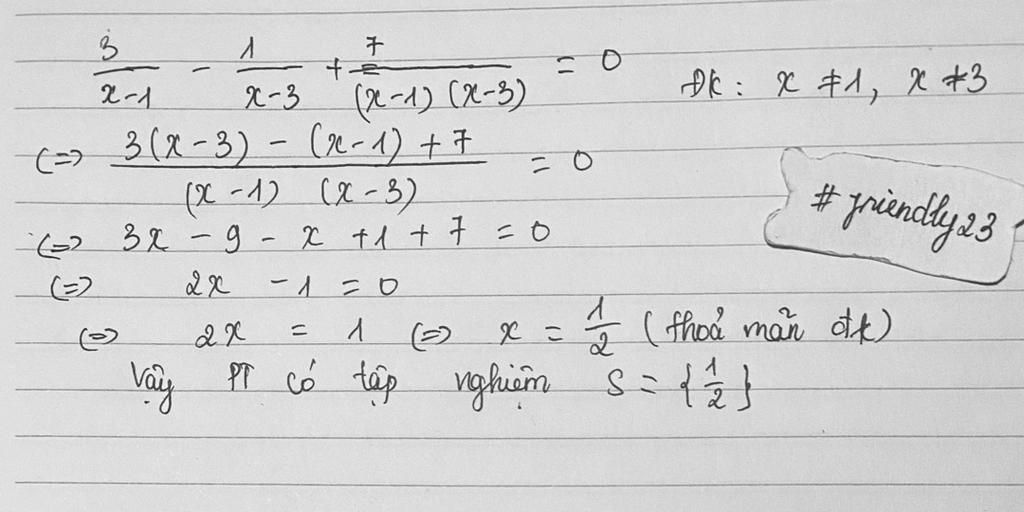 3/(x-1) - 1/(x-3) + 7/((x-1) (x-3)) = 0 ĐK: x ≠ 1, x ≠ 3
(=) (3(x-3) - (x-1) + 7)/((x-1) (x-3)) = 0
# friendly23
(=) 3x - 9 - x + 1 + 7 = 0
(=) 2x - 1 = 0
(=) 2x = 1 (=) x = 1/2 (thoả mãn đk)
Vậy PT có tập nghiệm S = {1/2}